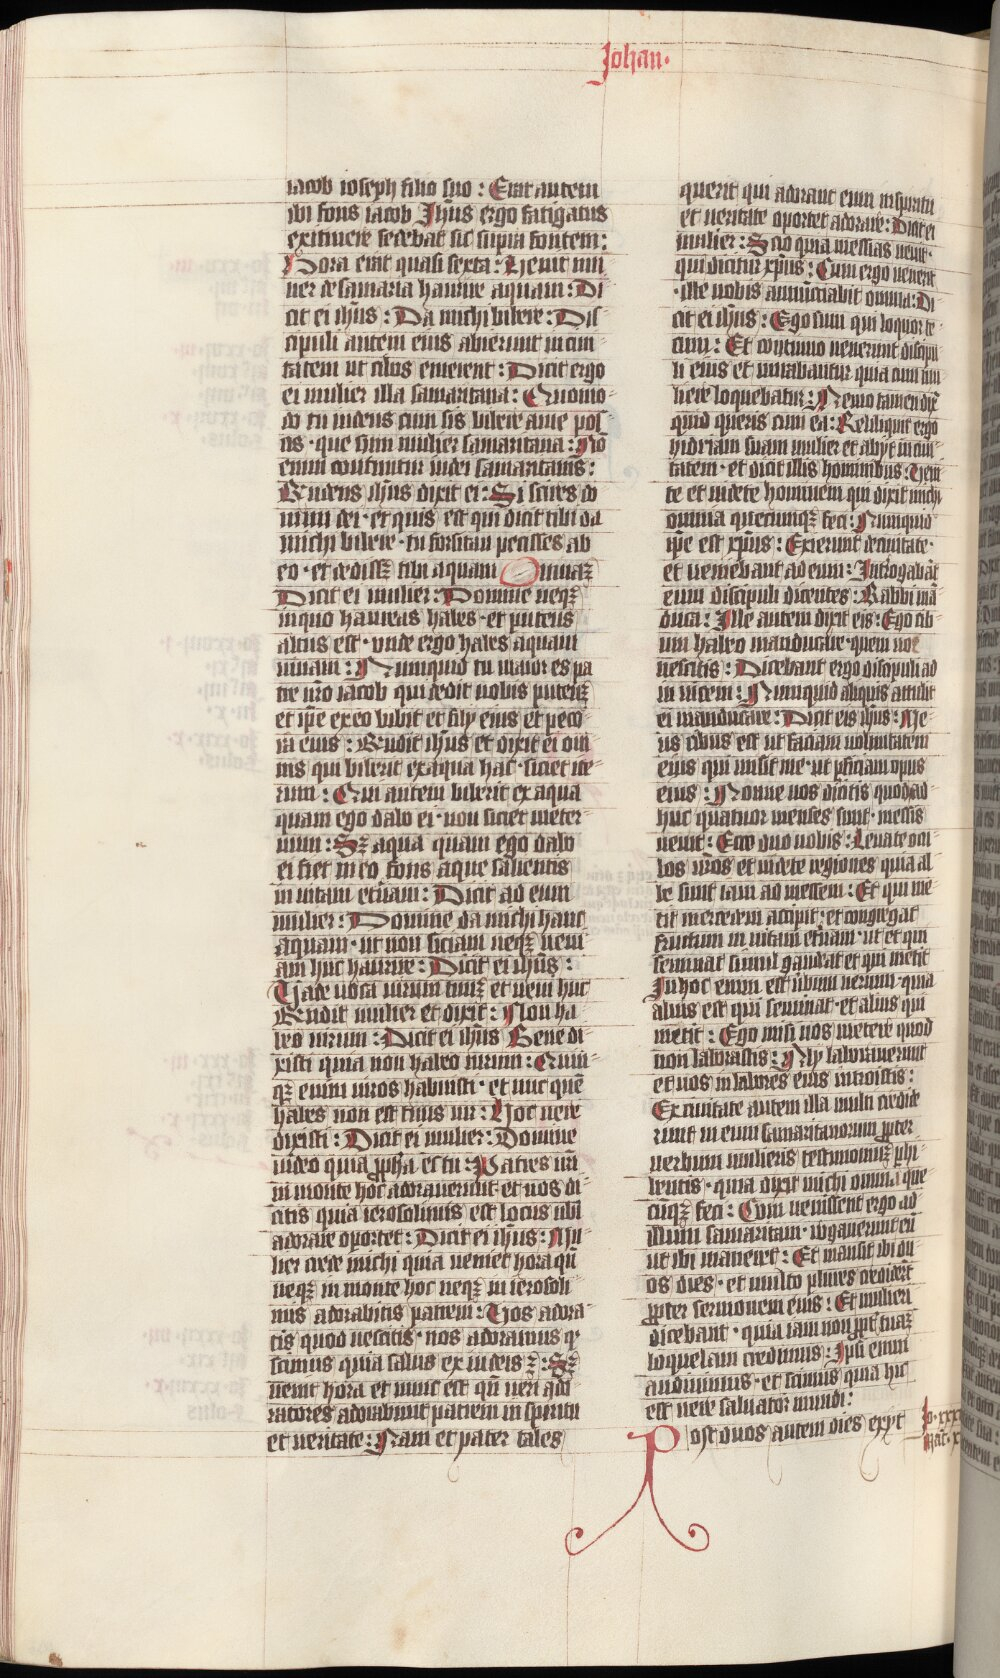 Johan·
iacob ioseph filio suo : Erat autem
ibi fons iacob Jhūs ergo fatigatus
exitinere sedebat sic supra fontem :
Hora erat quasi sexta : Uenit mu
lier de samaria haurire aquam : Di
cit ei ihūs : Da michi bibere : Dis
cipuli autem eius abierunt in ciui
tatem ut cibos emerent : Dicit ergo
ei mulier illa samaritana : Quomo
do tu iudeus cum sis bibere a me pos
cis · que sum mulier samaritana : Nō
enim coutuntur iudei samaritanis :
Rñdens ihūs dixit ei : Si scires do
num dei · et quis est qui dicit tibi da
michi bibere · tu forsitan petisses ab
eo · et dedissꝫ tibi aquam uiuaꝫ
Dicit ei mulier : Domine neqꝫ
inquo haurias habes · et puteus
altus est · unde ergo habes aquam
uiuam : Numquid tu maior es pa
tre nr̄o iacob qui dedit nobis puteūꝫ
et ip̄e ex eo bibit et filij eius et peco
ra eius : Rñdit ihūs et dixit ei om
nis qui biberit exaqua hac · sitiet ite
rum : Qui autem biberit ex aqua
quam ego dabo ei · non sitiet in eter
num : Sꝫ aqua quam ego dabo
ei fiet in eo fons aque salientis
in uitam et̄nam : Dicit ad eum
mulier : Domine da michi hanc
aquam · ut non siciam neqꝫ ueni
am huc haurire : Dicit ei ihūs :
Uade uoca uirum tuūꝫ et ueni huc
Rñdit mulier et dixit : Non ha
beo uirum : Dicit ei ihūs Bene di
xisti quia non habeo uirum : Quin
qꝫ enim uiros habuisti · et nūc quē
habes non est tuus uir : Hoc uere
dixisti : Dicit ei mulier : Domine
uideo quia ꝓph̄a es tu : Patres nr̄i
in monte hoc adorauerunt · et uos di
citis quia ierosolimis est locus ubi
adorare oportet : Dicit ei ihūs : Mu
lier crede michi quia ueniet hora qn̄
neqꝫ in monte hoc neqꝫ in ierosoli
mis adorabitis patrem : Uos adora
tis quod nescitis · nos adoramus qꝫ
scimus quia salus ex iudeis ꝫ : Sꝫ
uenit hora et nunc est qn̄ ueri ado
ratores adorabunt patrem in spiritu
et ueritate : Nam et pater tales
querit qui adorant eum in spiritu
et ueritate oportet adorare : Dicit ei
mulier : Scio quia messias uenit ·
qui dicitur xp̄us : Cum ergo uenerit
· ille nobis annūctiabit omnia : Di
cit ei ihūs : Ego sum qui loquor te
cum : Et continuo uenerunt discipu
li eius et mirabantur quia cum mu
liere loquebatur : Nemo tamen dix̄
quid queris cum ea : Reliquit ergo
hidriam suam mulier et abijt in ciui
tatem · et dicit illis hominibus : Ueni
te et uidete hominem qui dixit michi
omnia quecumqꝫ feci : Numquid
ip̄e est xp̄us : Exierunt de ciuitate ·
et ueniebant ad eum : Int̄rogabāt
eum discipuli dicentes : Rabbi mā
duca : Ille autem dixit eis : Ego cib
um habeo manducare · quem uos
nescitis : Dicebant ergo discipuli ad
in uicem : Numquid aliquis attulit
ei manducare : Dicit eis ihūs : Me
us cibus est ut faciam uoluntatem
eius qui misit me · ut ꝑficiam opus
eius : Nonne uos dicitis quod ad
huc quatuor menses sunt · messis
uenit : Ecce dico uobis : Leuate ocu
los ur̄os et uidete regiones quia al
be sunt iam ad messem : Et qui me
tit mercedem accipit · et congregat
fructum in uitam et̄nam · ut et qui
seminat simul gaudeat et qui metit
In hoc enim est ūbum uerum · quia
alius est qui seminat · et alius qui
metit : Ego misi uos metere quod
non laborastis : Alij laborauerunt
et uos in labores eius introistis :
Ex ciuitate autem illa multi credide
runt in eum samaritanorum ꝓpter
uerbum mulieris testimoniūꝫ phi
bentis · quia dixit michi omnia que
cūqꝫ feci : Cum uenissent ergo ad
illum samaritani · rogauerunt eū
ut ibi maneret : Et mansit ibi du
os dies · et multo plures crediderūt
ꝓpter sermonem eius : Et mulieri
dicebant · quia iam non ꝓpt̄ tuaꝫ
loquelam credimus : Ipsi enim
audiuimus · et scimus quia hic
est uere saluator mundi :
Post duos autem dies exijt